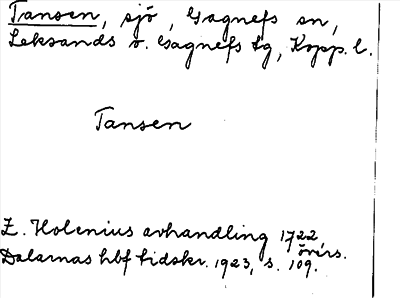 Tansen, sjö, Gagnefs sn,
Leksands o. Gagnefs tg, Kopp. l.
Tansen
Z. Holenius avhandling 1722
övers.
Dalarnas hbf tidskr. 1923, s. 109.